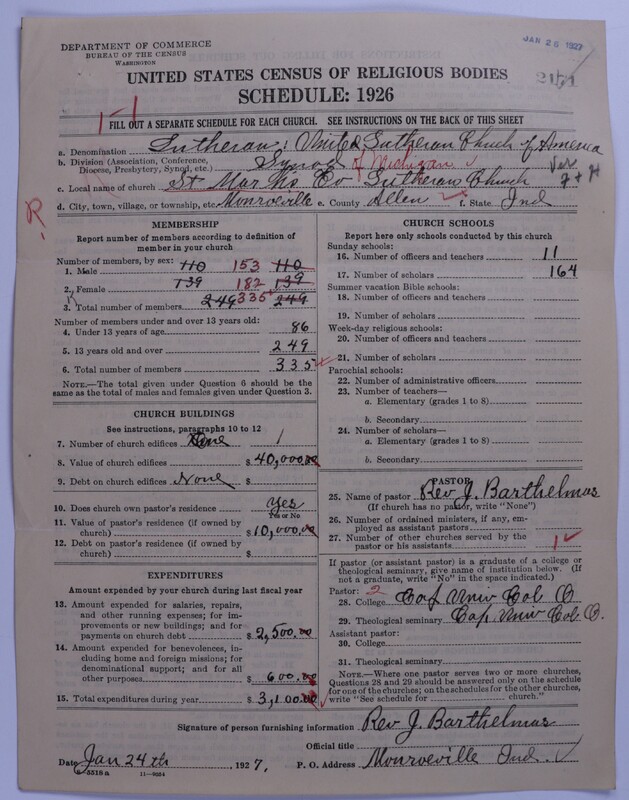 DEPARTMENT OF COMMERCE
BUREAU OF THE CENSUS
WASHINGTON
JAN 26 1927
UNITED STATES CENSUS OF RELIGIOUS BODIES
SCHEDULE: 1926
1-1
FILL OUT A SEPARATE SCHEDULE FOR EACH CHURCH. SEE INSTRUCTIONS ON THE BACK OF THIS SHEET
a. Denomination Lutheran; United Lutheran Church of America
b. Division (Association, Conference, Diocese, Presbytery, Synod, etc.) Synod of Michigan
c. Local name of church St Marks Ev Lutheran Church
d. City, town, village, or township, etc. Monroeville e. County Allen f. State Ind
R
MEMBERSHIP
Report number of members according to definition of
member in your church
Number of members, by sex:
1. Male 110 153 110
2. Female 139 182 139
3. Total number of members 249 335 249
Number of members under and over 13 years old:
4. Under 13 years of age 86
5. 13 years old and over 249
6. Total number of members 335
NOTE.—The total given under Question 6 should be the
same as the total of males and females given under Question 3.
CHURCH BUILDINGS
See instructions, paragraphs 10 to 12
7. Number of church edifices 1
8. Value of church edifices $ 40,000.00
9. Debt on church edifices None $
10. Does church own pastor's residence Yes
Yes or No
11. Value of pastor's residence (if owned by
church) $ 10,000.00
12. Debt on pastor's residence (if owned by
church) $
EXPENDITURES
Amount expended by your church during last fiscal year
13. Amount expended for salaries, repairs,
and other running expenses; for im-
provements or new buildings; and for
payments on church debt $ 2,500.00
14. Amount expended for benevolences, in-
cluding home and foreign missions; for
denominational support; and for all
other purposes $ 600.00
15. Total expenditures during year $ 3,100.00
CHURCH SCHOOLS
Report here only schools conducted by this church
Sunday schools:
16. Number of officers and teachers 11
17. Number of scholars 164
Summer vacation Bible schools:
18. Number of officers and teachers
19. Number of scholars
Week-day religious schools:
20. Number of officers and teachers
21. Number of scholars
Parochial schools:
22. Number of administrative officers
23. Number of teachers—
a. Elementary (grades 1 to 8)
b. Secondary
24. Number of scholars—
a. Elementary (grades 1 to 8)
b. Secondary
PASTOR
25. Name of pastor Rev J. Barthelmas
(If church has no pastor, write "None")
26. Number of ordained ministers, if any, em-
ployed as assistant pastors
27. Number of other churches served by the
pastor or his assistants 1
If pastor (or assistant pastor) is a graduate of a college or
theological seminary, give name of institution below. (If
not a graduate, write "No" in the space indicated.)
Pastor: 2
28. College Cap Univ Col O
29. Theological seminary Cap Univ Col O.
Assistant pastor:
30. College
31. Theological seminary
NOTE.—Where one pastor serves two or more churches,
Questions 28 and 29 should be answered only on the schedule
for one of the churches; on the schedules for the other churches,
write "See schedule for ............ church."
Signature of person furnishing information Rev J. Barthelmas
Official title
Date Jan 24th, 1927. P. O. Address Monroeville Ind.
5518a 11—9034